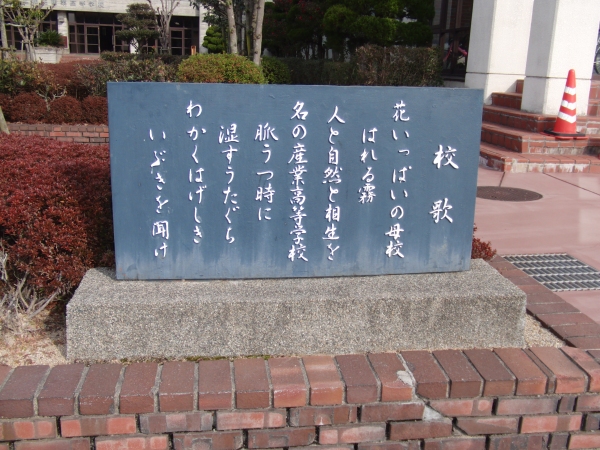 校歌
花いっぱいの母校
はれる霧
人と自然と相生を
名の産業高等学校
脈うつ時に
湿すうたぐち
わかくはげしき
いぶきを聞け